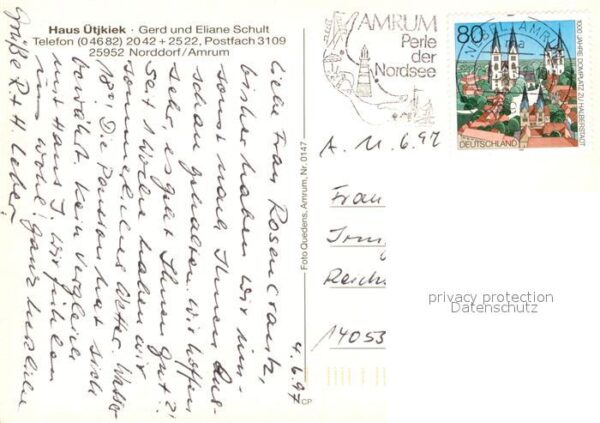 Haus Ütjkiek · Gerd und Eliane Schult
Telefon (04682) 2042 + 2522, Postfach 3109
25952 Norddorf/Amrum
AMRUM
Perle
der
Nordsee
80
1000 JAHRE DOMPLATZ ZU HALBERSTADT
DEUTSCHLAND
4.6.97
Liebe Frau Rosencrantz,
bisher haben wir uns
sonst nach Ihnen
schau gehalten. Wir hoffen
sehr, es geht Ihnen gut?!
Seit 1 Woche haben wir
sonniges Wetter. Wasser
18°! Die Pension hat sich
bewährt. Kein Vergleich
mit Haus J. Wir fühlen
uns wohl! Ganz herzliche
Grüße R. + H.
Foto Quedens, Amrum, Nr. 0147
CP
A. 11.6.97
Frau
Irmg
Reichs
14053
privacy protection
Datenschutz